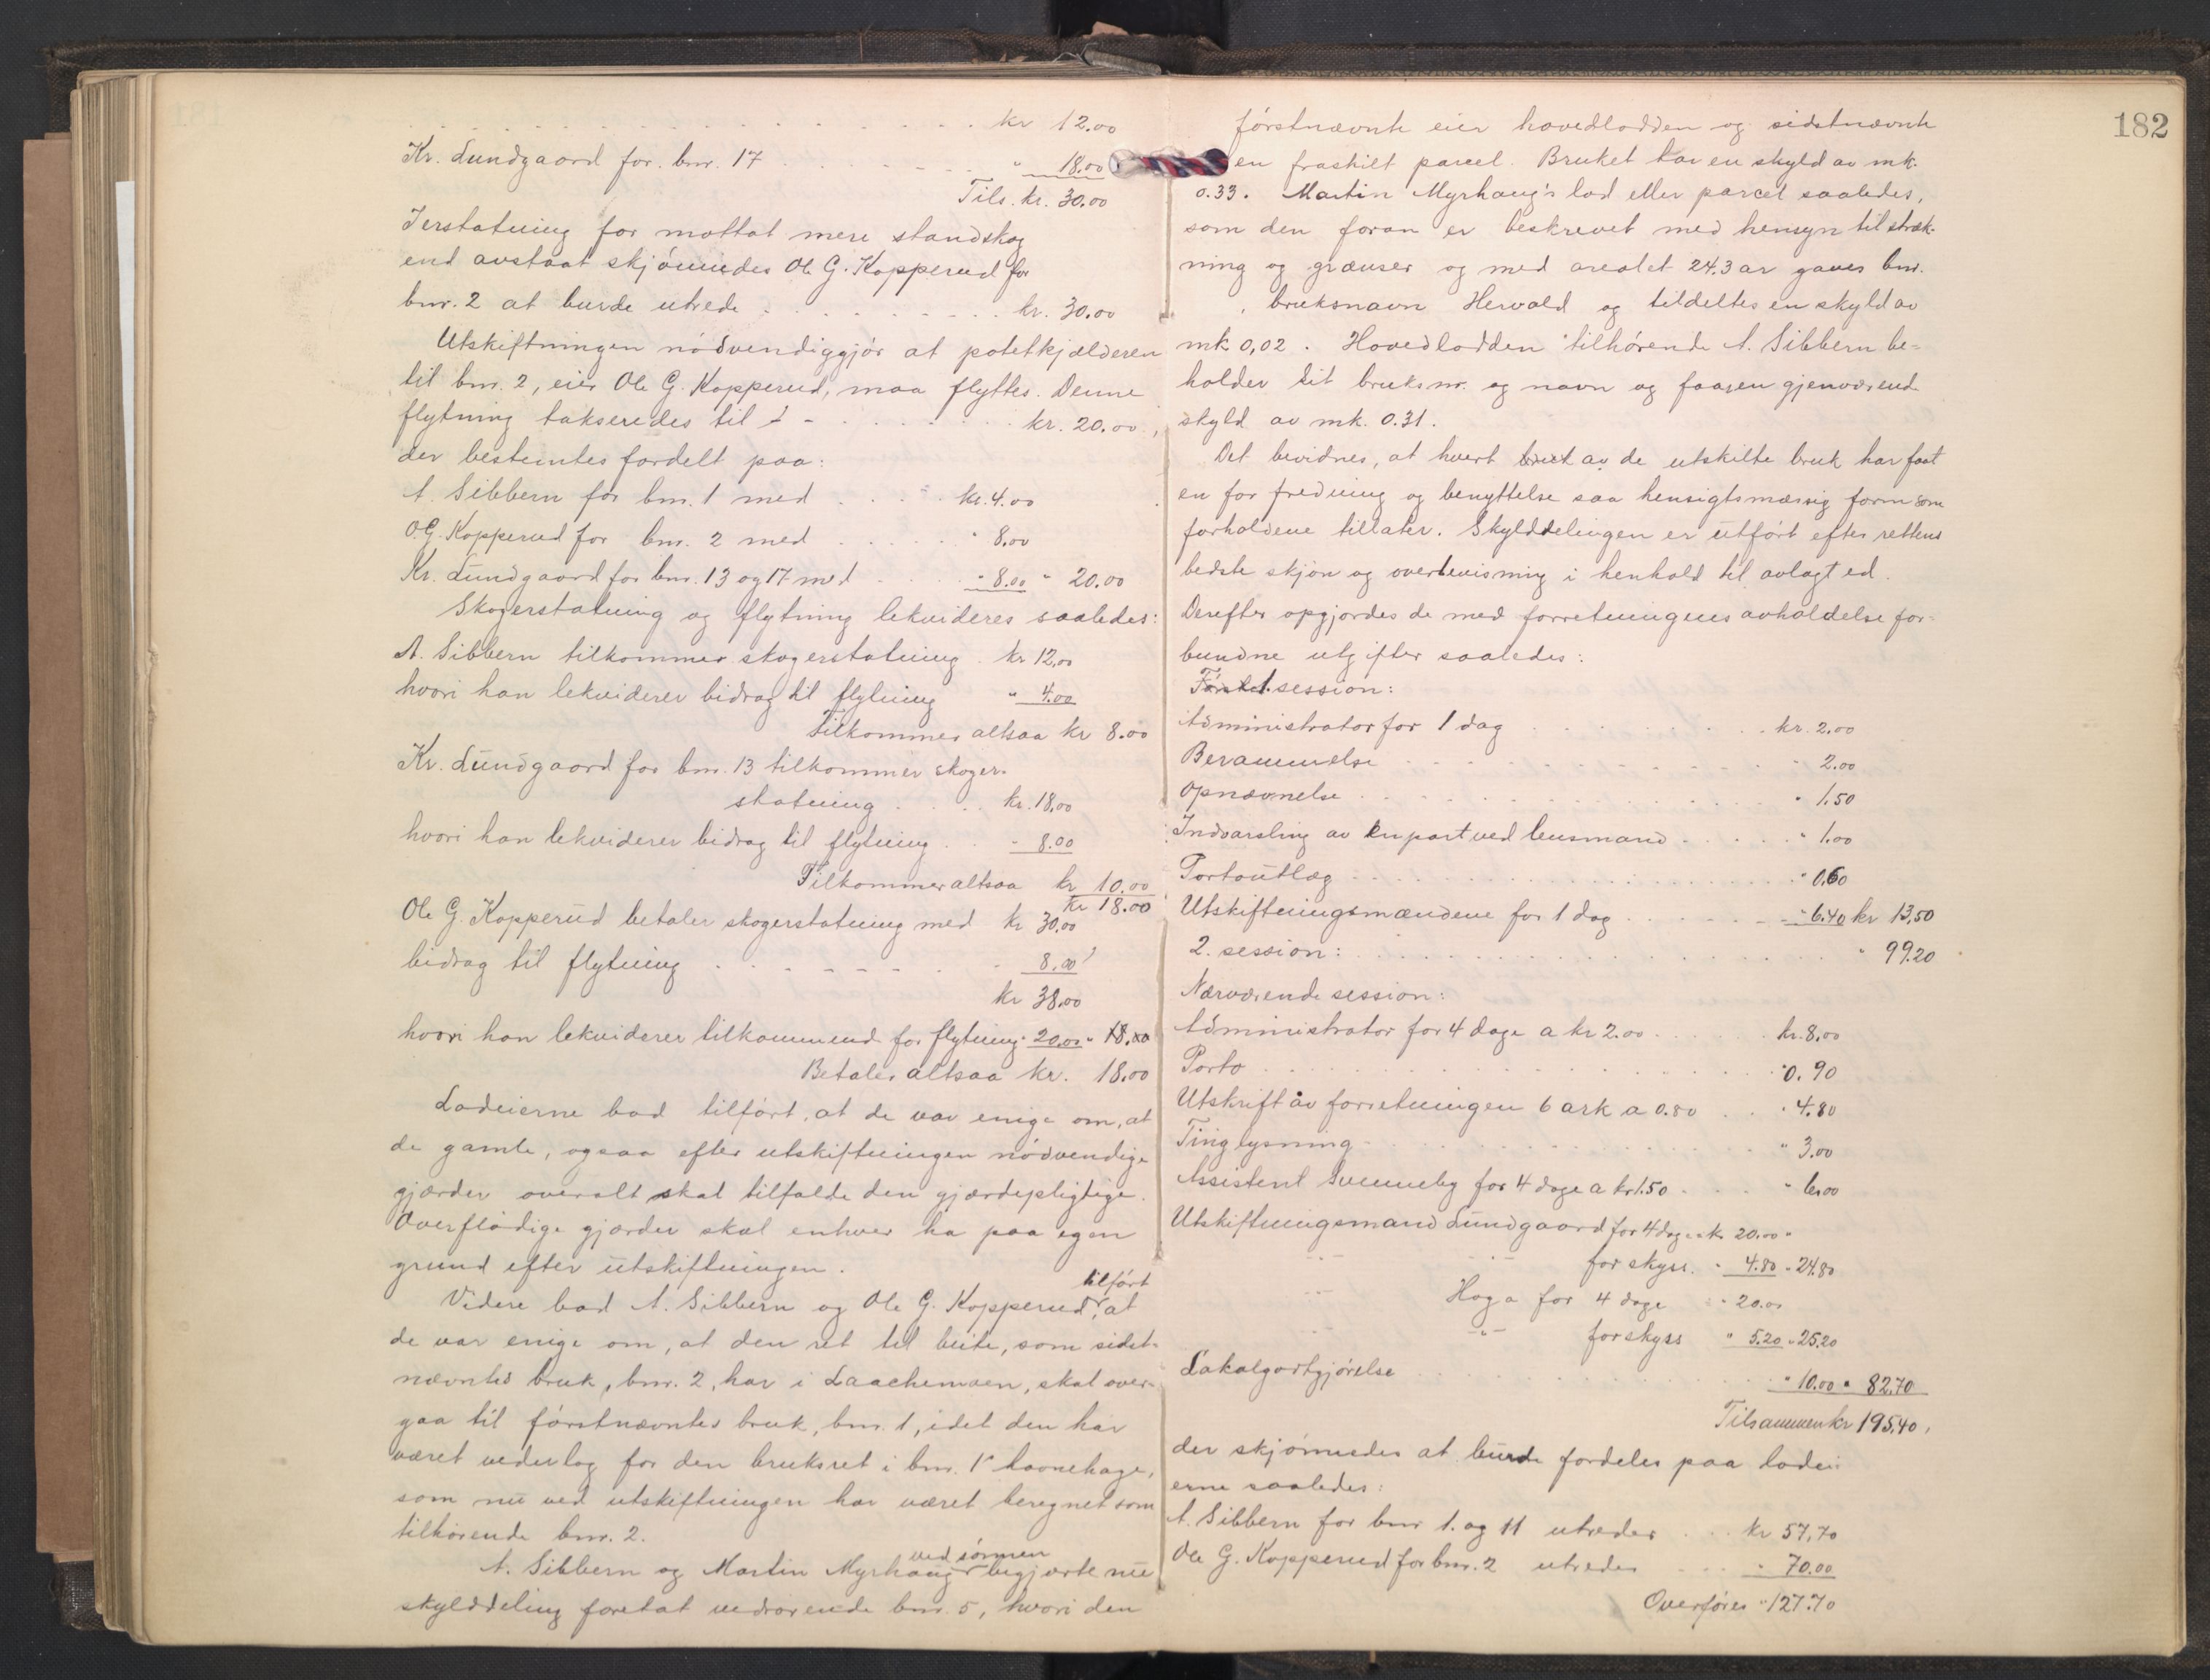 kr 12.00
Kr. Lundgaard for bnr. 17 " 18.00
Tils. kr. 30.00
I erstatning for mottat mere standskog
end avstaat skjønnedes Ole G. Kopperud for
bnr. 2 at burde utrede kr. 30.00
Utskiftningen nødvendiggjør at potetkjælderen
til bnr. 2, eier Ole G. Kopperud, maa flyttes. Denne
flytning takseredes til kr. 20.00,
der bestemtes fordelt paa:
A. Sibbern for bnr. 1 med kr. 4.00
O.G. Kopperud for bnr. 2 med " 8.00
Kr. Lundgaard for bnr. 13 og 17 med " 8.00 " 20.00
Skogerstatning og flytning lekvideres saaledes:
A. Sibbern tilkommer skogerstatning kr 12,00
hvori han lekviderer bidrag til flytning " 4.00
Tilkommer altsaa kr 8.00
Kr. Lundgaard for bnr. 13 tilkommer skoger-
statning kr. 18,00
hvori han lekviderer bidrag til flytning - 8.00
Tilkommer altsaa kr 10.00
kr 18.00
Ole G. Kopperud betaler skogerstatning med kr 30,00
bidrag til flytning 8.00
kr 38.00
hvori han lekviderer tilkommend for flytning " 20.00 " 18.00
Betaler altsaa kr. 18.00
Lodeierne bad tilført, at de var enige om, at
de gamle, ogsaa efter utskiftningen nødvendige
gjærder overalt skal tilfalde den gjærdepligtige.
Overflødige gjærder skal enhver ha paa egen
grund efter utskiftningen.
tilført
Videre bad A. Sibbern og Ole G. Kopperud, at
de var enige om, at den ret til beite, som sidst-
nævntes bruk, bnr. 2, har i Laachemoen, skal over-
gaa til førstnævntes bruk, bnr. 1, idet den har
været vederlag for den bruksret i bnr. 1's havnehage,
som nu ved utskiftningen har været beregnet som
tilhørende bnr. 2.
ved sønnen
A. Sibbern og Martin Myrhaug begjærte nu
skylddeling foretat vedrørende bnr. 5, hvori den
182
førstnævnte eier hovedlodden og sidstnævnte
en fraskilt parcel. Bruket har en skyld av mk.
0.33. Martin Myrhaug's lod eller parcel saaledes,
som den foran er beskrevet med hensyn til stræk-
ning og grænser og med arealet 24.3 ar gaves bnr.
, bruksnavn Hervald og tildeltes en skyld av
mk 0,02. Hovedlodden tilhørende A. Sibbern be-
holder sit bruksnr. og navn og faar en gjenværende
skyld av mk. 0.31.
Det bevidnes, at hvert bruk av de utskilte bruk har faat
en for fredning og benyttelse saa hensigtsmæssig form som
forholdene tillater. Skylddelingen er utført efter rettens
bedste skjøn og overbevisning i henhold til avlagt ed.
Derefter opgjordes de med forretningens avholdelse for-
bundne utgifter saaledes:
1. session:
Administrator for 1 dag kr. 2.00
Berammelse " 2.00
Opnævnelse " 1.50
Indvarsling av en part ved lensmand " 1.00
Portoutlæg " 0.60
Utskiftningsmændene for 1 dag " 6.40 kr 13,50
2. session: " 99.20
Nærværende session:
Administrator for 4 dage a kr 2.00 kr. 8,00
Porto " 0.90
Utskrift av forretningen 6 ark a 0.80 " 4.80
Tinglysning " 3.00
Assistent Svenneby for 4 dage a kr 1.50 " 6.00
Utskiftningsmand Lundgaard for 4 dage kr. 20.00
for skyss " 4.80 " 24.80
Hoga for 4 dage " 20.00
for skyss " 5.20 " 25.20
Lokalgodtgjørelse " 10.00 " 82.70
Tilsammen kr 195,40,
der skjønnedes at burde fordeles paa lodei-
erne saaledes:
A. Sibbern for bnr 1. og 11 utreder kr 57,70
Ole G. Kopperud for bnr. 2 utreder " 70.00
Overføres " 127.70